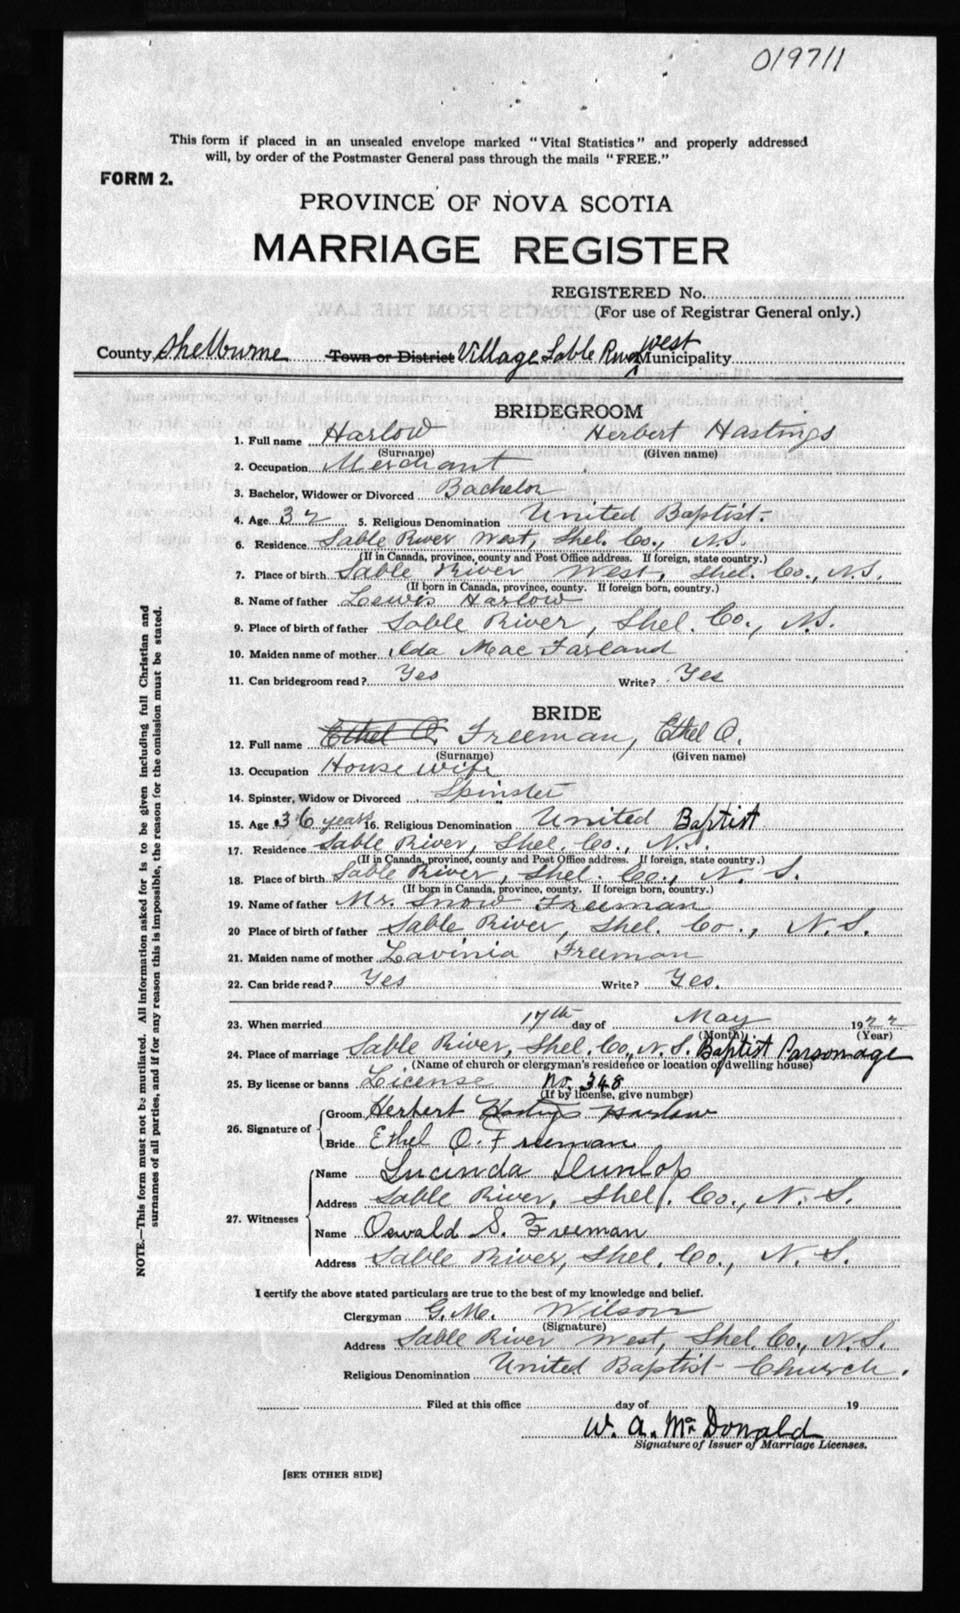 019711
This form if placed in an unsealed envelope marked "Vital Statistics" and properly addressed
will, by order of the Postmaster General pass through the mails "FREE."
FORM 2.
PROVINCE OF NOVA SCOTIA
MARRIAGE REGISTER
REGISTERED No.
(For use of Registrar General only.)
County Shelburne Town or District Village Sable River West Municipality
BRIDEGROOM
1. Full name Harlow Herbert Hastings
(Surname) (Given name)
2. Occupation Merchant
3. Bachelor, Widower or Divorced Bachelor
4. Age 32 5. Religious Denomination United Baptist.
6. Residence Sable River West, Shel. Co., N.S.
(If in Canada, province, county and Post Office address. If foreign, state country.)
7. Place of birth Sable River West, Shel. Co., N.S.
(If born in Canada, province, county. If foreign born, country.)
8. Name of father Lewis Harlow
9. Place of birth of father Sable River, Shel. Co., N.S.
10. Maiden name of mother Ada Mac Farland
11. Can bridegroom read? Yes Write? Yes
BRIDE
12. Full name Ethel O. Freeman, Ethel O.
(Surname) (Given name)
13. Occupation Housewife
14. Spinster, Widow or Divorced Spinster
15. Age 36 years 16. Religious Denomination United Baptist
17. Residence Sable River, Shel. Co., N.S.
(If in Canada, province, county and Post Office address. If foreign, state country.)
18. Place of birth Sable River, Shel. Co., N.S.
(If born in Canada, province, county. If foreign born, country.)
19. Name of father Mr. Snow Freeman
20 Place of birth of father Sable River, Shel. Co., N.S.
21. Maiden name of mother Lavinia Freeman
22. Can bride read? Yes Write? Yes.
23. When married 17th day of May 1922
(Month) (Year)
24. Place of marriage Sable River, Shel. Co., N.S. Baptist Parsonage
(Name of church or clergyman's residence or location of dwelling house)
25. By license or banns License No. 348
(If by license, give number)
26. Signature of
Groom Herbert Hastings Harlow
Bride Ethel O. Freeman
27. Witnesses
Name Lucinda Dunlop
Address Sable River, Shel. Co., N.S.
Name Oswald S. Freeman
Address Sable River, Shel. Co., N.S.
I certify the above stated particulars are true to the best of my knowledge and belief.
Clergyman G. M. Wilson
(Signature)
Address Sable River West, Shel. Co., N.S.
Religious Denomination United Baptist Church.
Filed at this office day of 19
W. A. McDonald
Signature of Issuer of Marriage Licenses.
[SEE OTHER SIDE]
NOTE.—This form must not be mutilated. All information asked for is to be given including full Christian and
surnames of all parties, and if for any reason this is impossible, the reason for the omission must be stated.